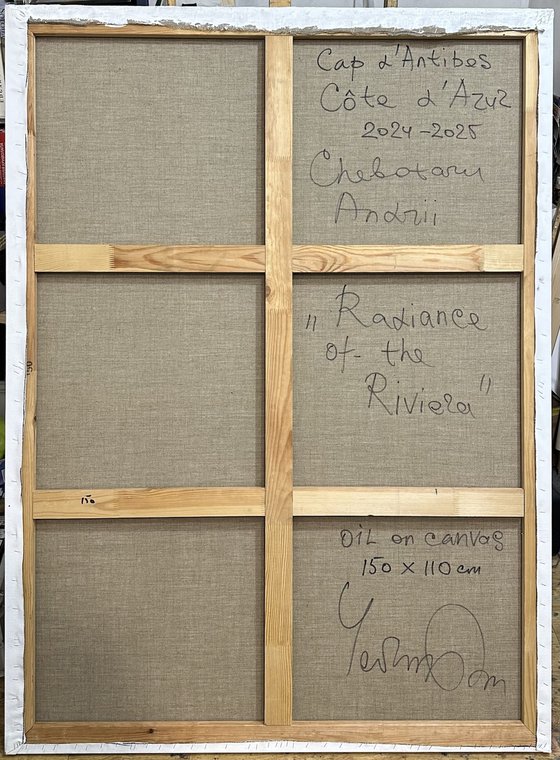 Cap d'Antibes
Côte d'Azur
2024-2025
Chebotaru
Andrii
„Radiance
of the
Riviera"
150
150
OiL on canvas
150 × 110 cm